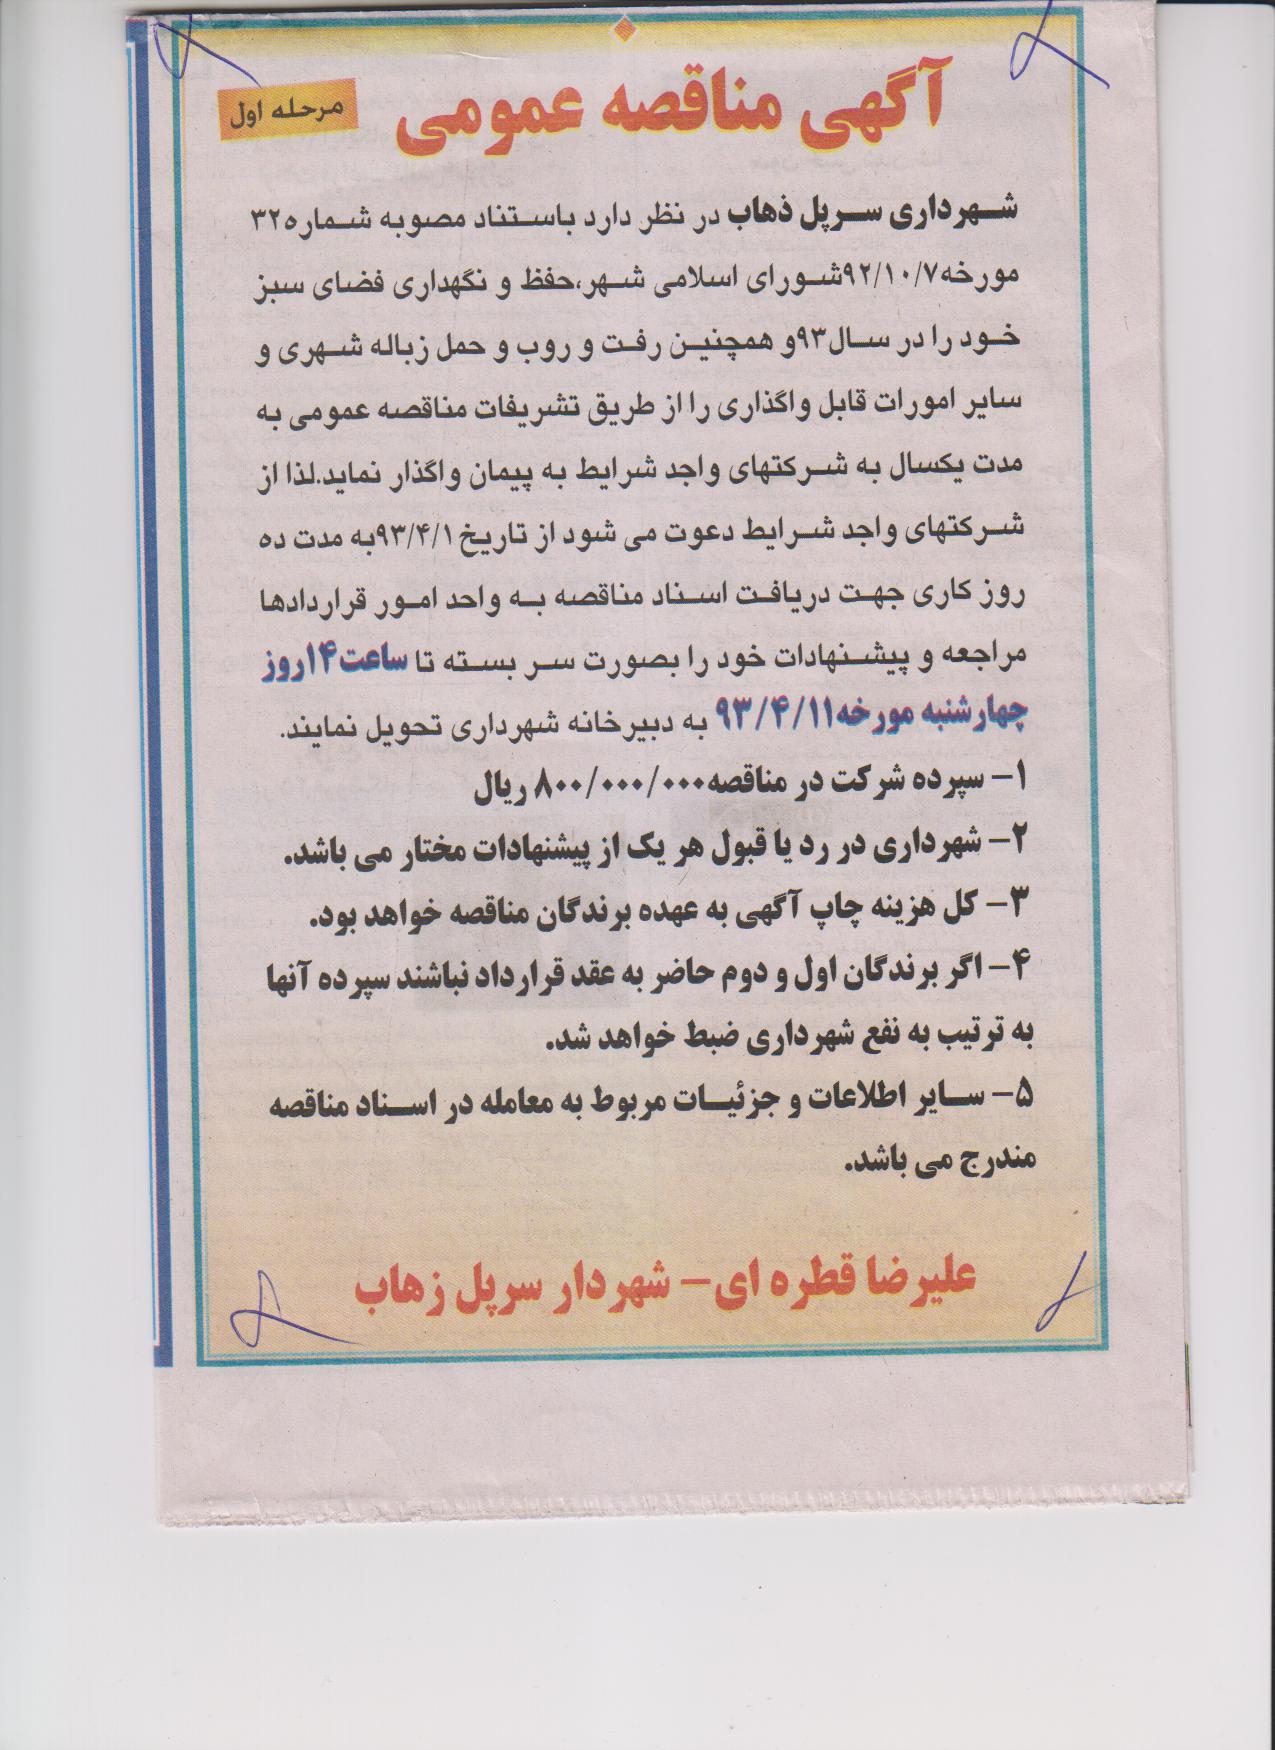 آگهی مناقصه عمومی
مرحله اول
شهرداری سرپل ذهاب در نظر دارد باستناد مصوبه شماره ۳۲
مورخه ۹۲/۱۰/۷شورای اسلامی شهر،حفظ و نگهداری فضای سبز
خود را در سال۹۳و همچنین رفت و روب و حمل زباله شهری و
سایر امورات قابل واگذاری را از طریق تشریفات مناقصه عمومی به
مدت یکسال به شرکتهای واجد شرایط به پیمان واگذار نماید.لذا از
شرکتهای واجد شرایط دعوت می شود از تاریخ ۹۳/۴/۱به مدت ده
روز کاری جهت دریافت اسناد مناقصه به واحد امور قراردادها
مراجعه و پیشنهادات خود را بصورت سر بسته تا ساعت۱۴روز
چهارشنبه مورخه۹۳/۴/۱۱ به دبیرخانه شهرداری تحویل نمایند.
۱- سپرده شرکت در مناقصه۸۰۰/۰۰۰/۰۰۰ ریال
۲- شهرداری در رد یا قبول هر یک از پیشنهادات مختار می باشد.
۳- کل هزینه چاپ آگهی به عهده برندگان مناقصه خواهد بود.
۴- اگر برندگان اول و دوم حاضر به عقد قرارداد نباشند سپرده آنها
به ترتیب به نفع شهرداری ضبط خواهد شد.
۵- سایر اطلاعات و جزئیات مربوط به معامله در اسناد مناقصه
مندرج می باشد.
علیرضا قطره ای- شهردار سرپل زهاب